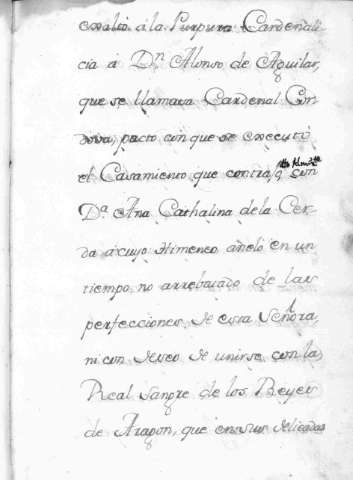 exalto á la Purpura Cardenali
cia á Dn. Alonso de Aguilar,
que se llamava Cardenal Cor
dova, pacto con que se executó
el Casamiento que contrajo con
Da. Ana Cathalina de la Cer-
da á cuyo Himeneo aneló en un
tiempo, no arrebatado de las
perfecciones de esta Señora,
ni con deseo de unirse con la
Real sangre de los Reyes
de Aragon, que en sus delicadas